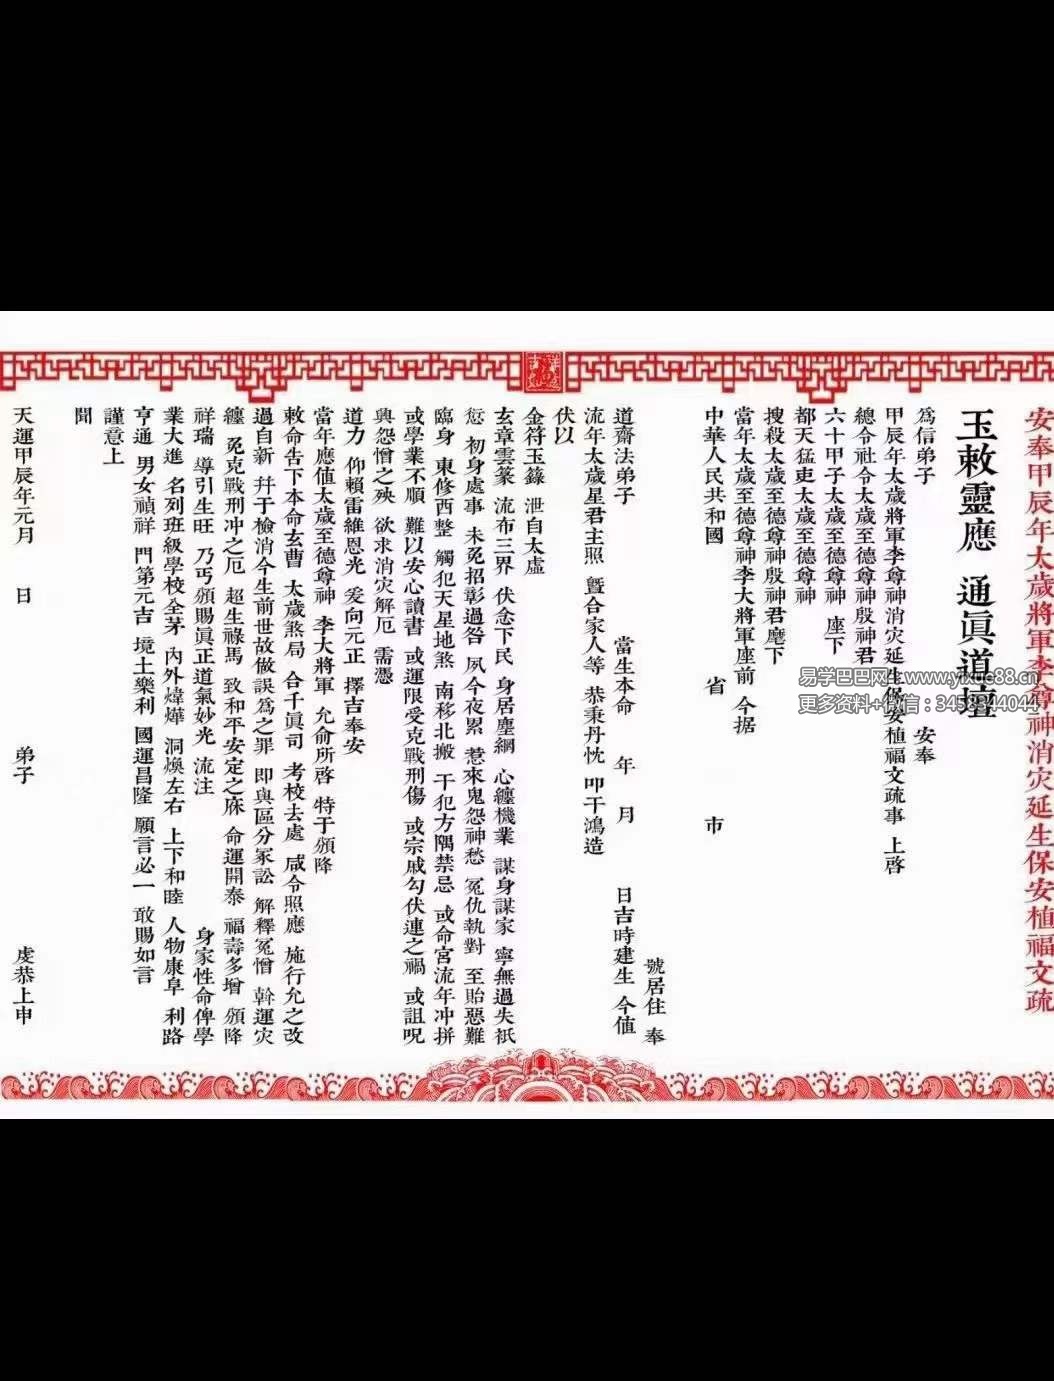 安奉甲辰年太歲將軍李尊神消灾延生保安植福文疏
玉敕靈應 通眞道壇
爲信弟子 安奉
甲辰年太歲將軍李尊神消灾延生保安植福文疏事 上啓
總令社令太歲至德尊神殷神君
六十甲子太歲至德尊神 座下
都天猛吏太歲至德尊神
搜殺太歲至德尊神殷神君麾下
當年太歲至德尊神李大將軍座前 今据
中華人民共和國 省 市
號居住 奉
道齋法弟子 當生本命 年 月 日吉時建生 今值
流年太歲星君主照 曁合家人等 恭秉丹忱 叩干鴻造
伏以
金符玉籙 泄自太虛
玄章雲篆 流布三界 伏念下民 身居塵網 心纏機業 謀身謀家 寧無過失祇
愆 初身處事 未免招彰過咎 夙今夜累 惹來鬼怨神愁 冤仇執對 至貽惡難
臨身 東修西整 觸犯天星地煞 南移北搬 干犯方隅禁忌 或命宮流年冲拼
或學業不順 難以安心讀書 或運限受克戰刑傷 或宗戚勾伏連之禍 或詛呪
興怨憎之殃 欲求消灾解厄 需憑
道力 仰賴雷維恩光 爰向元正 擇吉奉安
當年應值太歲至德尊神 李大將軍 允俞所啓 特于頒降
敕命告下本命玄曹 太歲煞局 合千眞司 考校去處 咸令照應 施行允之改
過自新 幷于檢消今生前世故做誤爲之罪 即與區分冢訟 解釋冤憎 斡運灾
纏 免克戰刑冲之厄 超生祿馬 致和平安定之庥 命運開泰 福壽多增 頒降
祥瑞 導引生旺 乃丐頒賜眞正道氣妙光 流注 身家性命俾學
業大進 名列班級學校全茅 內外煒燁 洞煥左右 上下和睦 人物康阜 利路
亨通 男女禎祥 門第元吉 境土樂利 國運昌隆 願言必一 敢賜如言
謹意上
聞
天運甲辰年元月 日 弟子 虔恭上申
易学巴巴网:www.yixue88.cn
更多资料+微信：3458344044